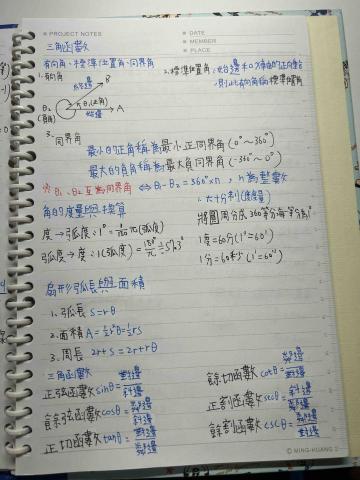 PROJECT NOTES
DATE
MEMBER
PLACE
三角函數
有向角、標準位置角、同界角
1.有向角
終邊 B
θ1(正角)
A
始邊
θ2
(負角)
2.標準位置角:始邊和x軸的正向重合
則此有向角稱標準位置角
3.同界角
最小的正角稱為最小正同界角(0°~360°)
最大的負角稱為最大負同界角(-360°~0°)
※θ1、θ2互為同界角 ⇔ θ1-θ2=360°×n,n為整數
角的度量與換算
度→弧度:1°=1/180π(弧度)
弧度→度:1(弧度)=180°/π≒57.3°
1.六十分制(度度量)
將圓周分成360等分每等分為1°
1度=60分(1°=60')
1分=60秒(1'=60'')
扇形弧長與面積
1.弧長 s=rθ
2.面積 A=1/2r²θ=1/2rs
3.周長 2r+s=2r+rθ
三角函數
正弦函數sinθ=對邊/斜邊
餘弦函數cosθ=鄰邊/斜邊
正切函數tanθ=對邊/鄰邊
餘切函數cotθ=鄰邊/對邊
正割函數secθ=斜邊/鄰邊
餘割函數cscθ=斜邊/對邊
©MING-KUANG